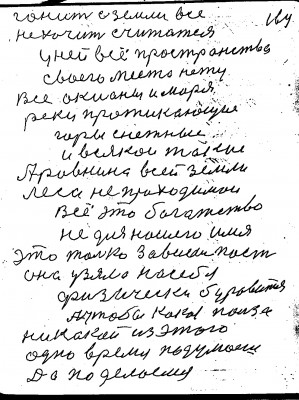 гонит с земли все
нехочит считатся
у ней всё пространства
своего место нету
Все океаны и моря,
реки протикающие
горы снежные
и всякой также
А ровнина всей земли
леса не проходимои
Всё это богатство
не для нашего имя
это толко
она узяла на себя
физически
Ачтобы кака полза
никакой из этого
одно время подумаеш
Да по делаеш